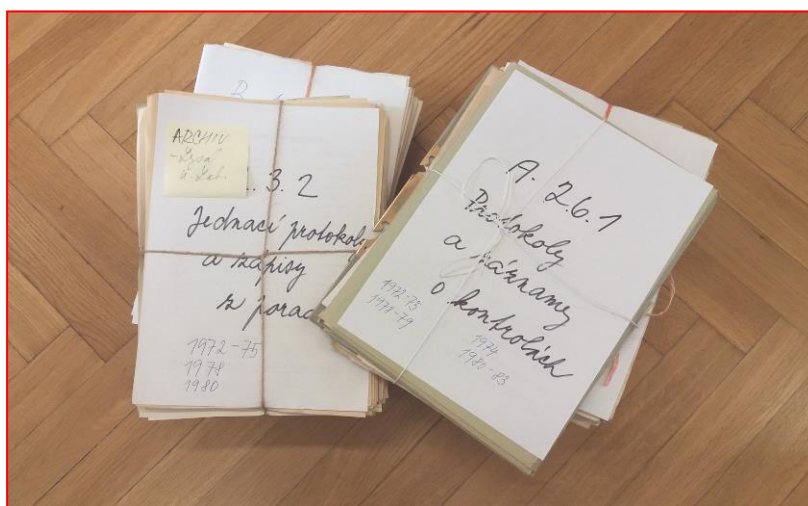 ARCHIV
. 3. 2
Jednací protokoly
a zápisy
z porad
1972-75
1978
1980
A. 26.1
Protokoly
a záznamy
o kontrolách
1972-75
1977-79
1974
1980-83